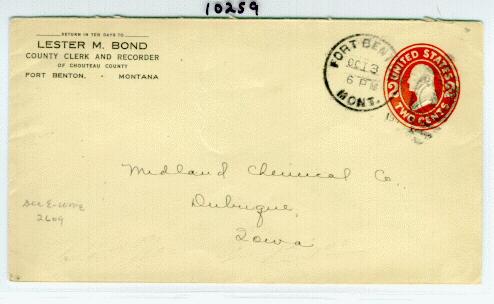 10259
RETURN IN TEN DAYS TO
LESTER M. BOND
COUNTY CLERK AND RECORDER
OF CHOUTEAU COUNTY
FORT BENTON, - MONTANA
FORT BENT
OCT 3
6 PM
MONT.
UNITED STATES
2 2
TWO CENTS
Midland Chemical Co.,
Dubuque,
Iowa
2609